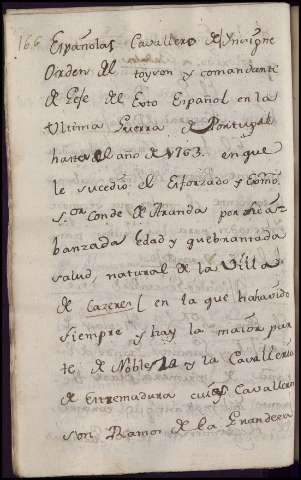 166
Españolas Cavallero del Insigne
Orden del toyson y comandante
de Gefe del Exto Español en la
Ultima Guerra de Portugal
hasta el año de 1763. en que
le sucedio el Esforzado y Exmo.
Sor Conde de Aranda por su a-
banzada edad y quebrantada
salud, natural de la Villa
de Cazeres (en la que ha havido
siempre y hay la maior par
te de Nobleza y la Cavalleria
de Extremadura cuios Cavalleros
son Ramos de la Grandeza